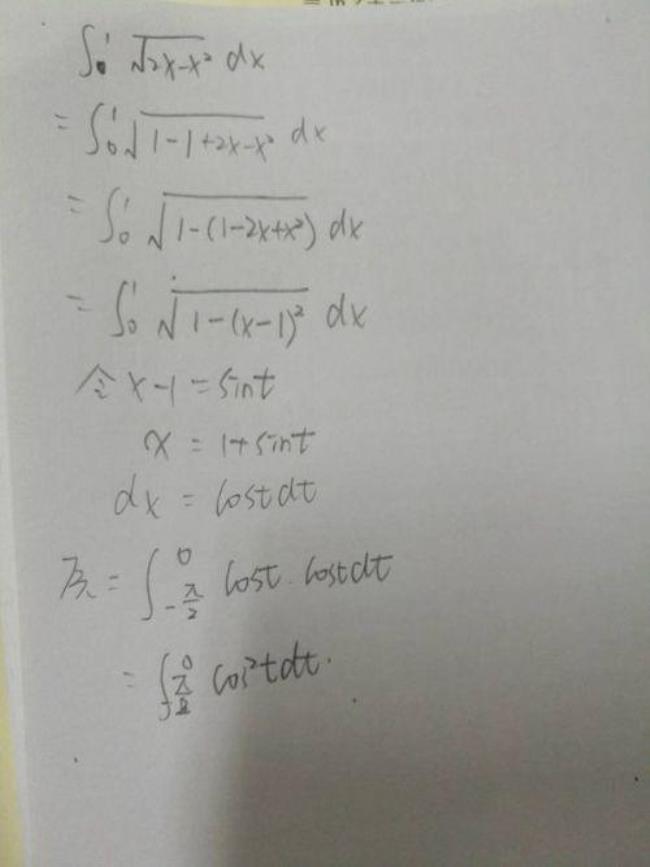 ∫₀¹ √(2x-x²) dx
= ∫₀¹ √(1-1+2x-x²) dx
= ∫₀¹ √(1-(1-2x+x²)) dx
= ∫₀¹ √(1-(x-1)²) dx
令 x-1 = sint
x = 1+sint
dx = costdt
= ∫_{-π/2}^{0} cost·costdt
= ∫_{-π/2}^{0} cos²tdt.